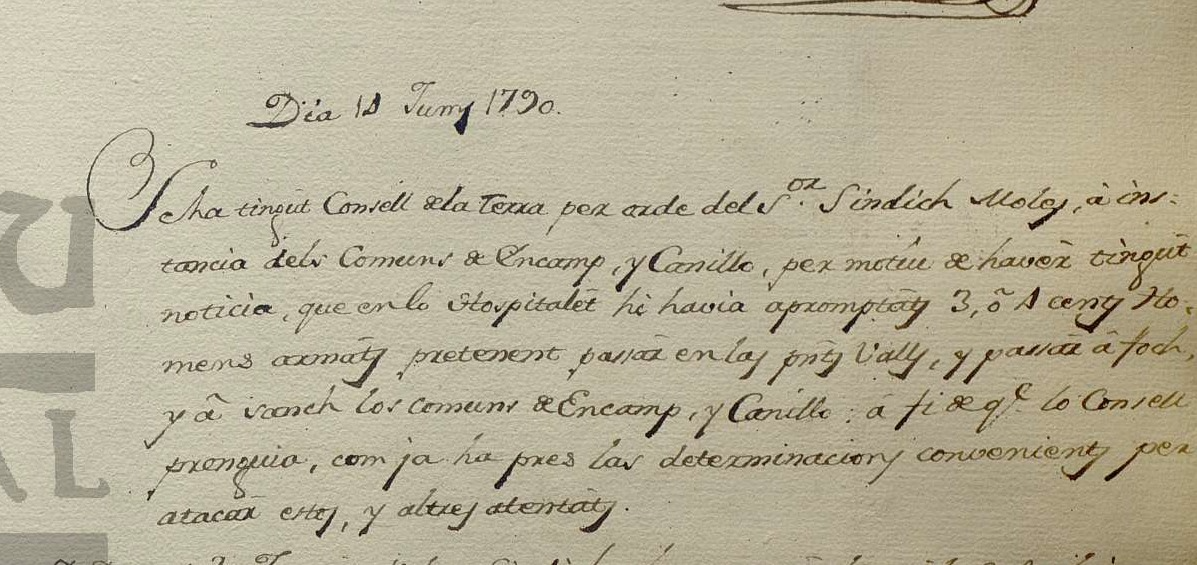 Dia 14 Juny 1790.
Se ha tingut Consell de la Terra per orde del S.or Sindich Moles, â ins-
tancia dels Comuns de Encamp, y Canillo, per motiu de haver tingut
noticia, que en lo Hospitalet hi havia apromptats 3, ô 4 cents Ho-
mens armats pretenent passar en las pnts Valls, y passar â foch,
y â sanch los comuns de Encamp, y Canillo; â fi de qe. lo Consell
prenguia, com ja ha pres las determinacions convenients per
atacar estos, y altres atentats.